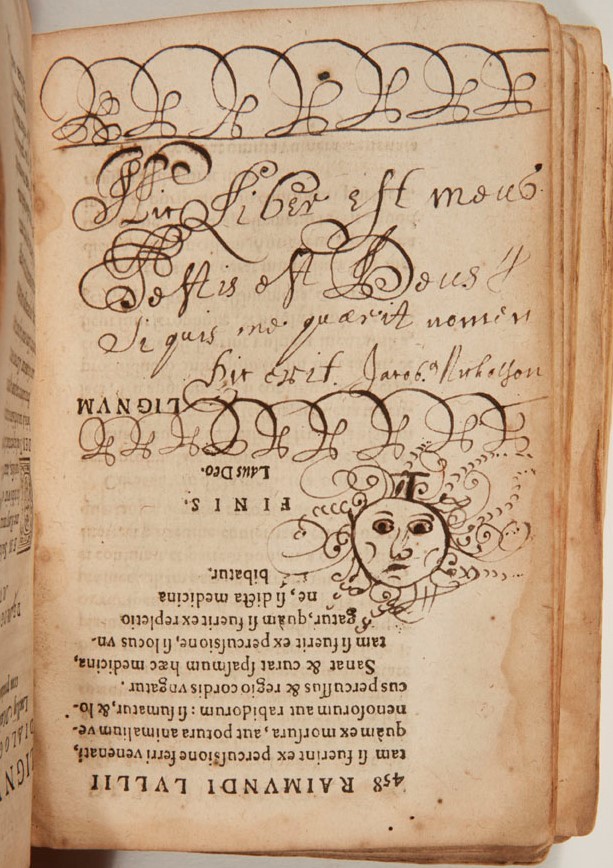 Hic Liber est meus
Testis est Deus
Si quis me quærit nomen
hic erit. Jacob.⁹ Nicholson
458 RAIMVNDI LVLLII
tam si fuerint ex percussione ferri venenati,
quàm ex morsura, aut potura animalium ve-
nenosorum aut rabidorum : si sumatur, & lo-
cus percussus & regio cordis vngatur.
Sanat & curat spasmum hæc medicina,
tam si fuerit ex percussione, si locus vn-
gatur, quàm si fuerit ex repletio
ne, si dicta medicina
bibatur.
FINIS.
Laus Deo.
LIGNVM